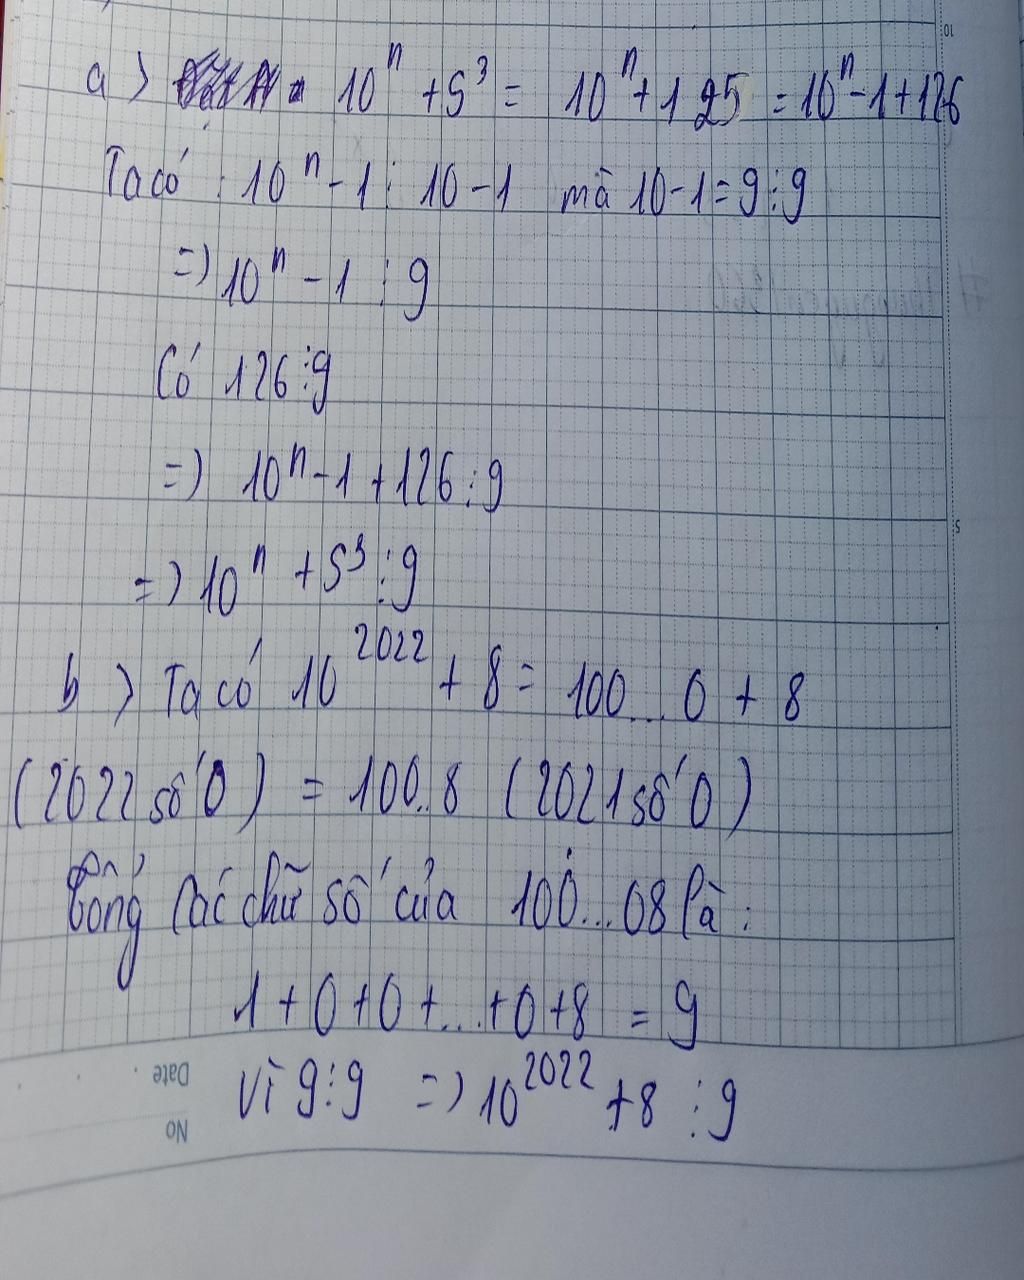 10
a) 10ⁿ + 5³ = 10ⁿ + 125 = 10ⁿ - 1 + 126
Ta có : 10ⁿ - 1 ⋮ 10 - 1 mà 10 - 1 = 9 ⋮ 9
=) 10ⁿ - 1 ⋮ 9
Có 126 ⋮ 9
=) 10ⁿ - 1 + 126 ⋮ 9
5
=) 10ⁿ + 5³ ⋮ 9
b) Ta có 10²⁰²² + 8 = 100...0 + 8
(2022 số 0) = 100..8 (2021 số 0)
Tổng các chữ số của 100...08 là :
1 + 0 + 0 + ... + 0 + 8 = 9
Date
Vì 9 ⋮ 9 =) 10²⁰²² + 8 ⋮ 9
No